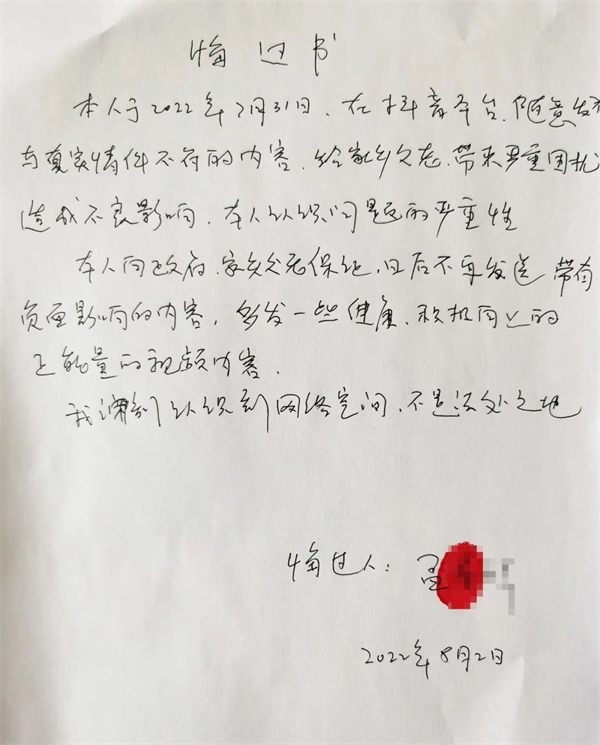 悔过书
本人于2022年7月31日,在抖音平台,随意发布
与真实情件不符的内容,给家乡父老,带来严重困扰
造成不良影响,本人认识问题的严重性
本人向政府,家乡父老保证,日后不再发送带有
负面影响的内容,多发一些健康,积极向上的
正能量的视频内容.
我深刻认识到网络空间,不是法外之地
悔过人:孟
2022年8月2日